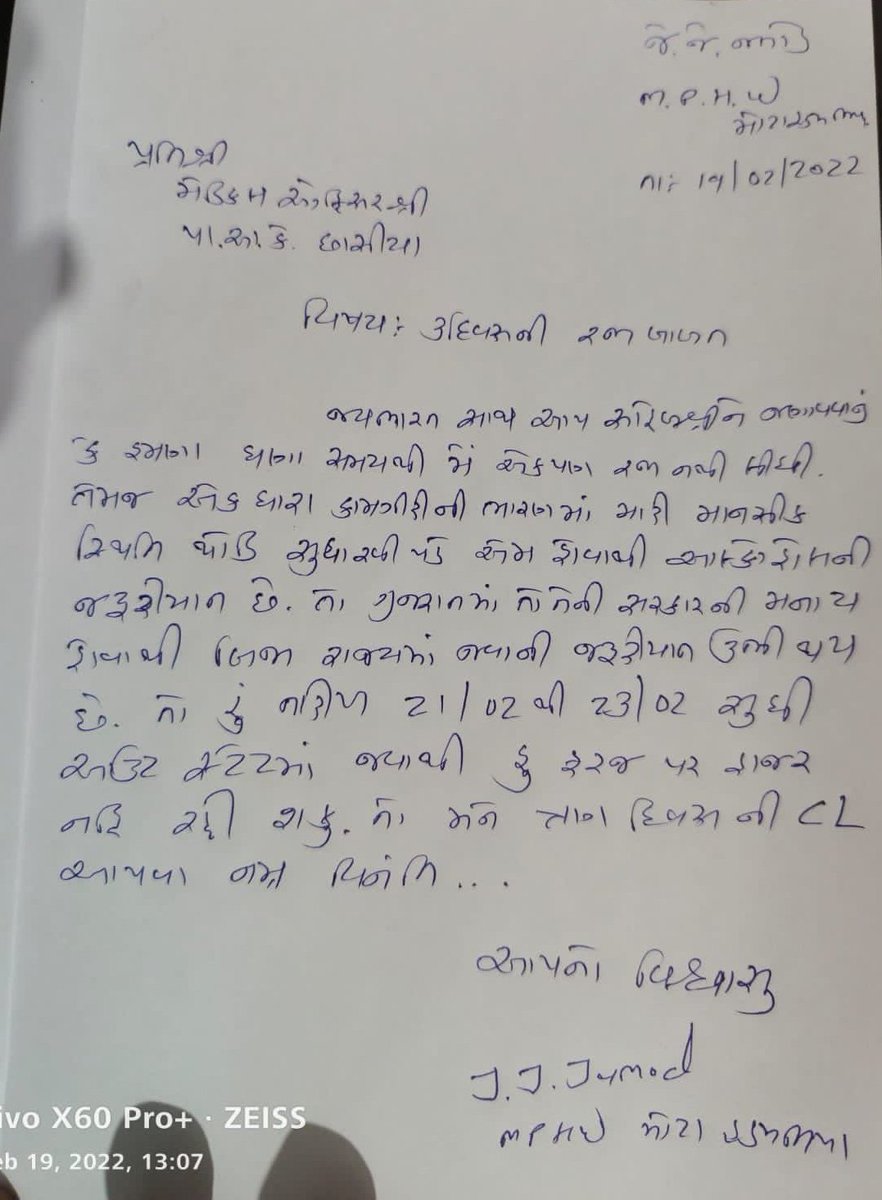 જે.જે. જમોડ
M.P.H.W
તા: 19/02/2022
પ્રતિશ્રી
મેડિકલ ઓફિસરશ્રી
પ્રા.આ.કે. છાસીયા
વિષય: ૩ દિવસની રજા બાબત
જયભારત સાથ આપ સાહેબશ્રીને જણાવવાનું
કે હમણા ઘણા સમયથી મેં એકપણ રજા નથી લીધી.
તેમજ એક ધારા કામગીરીની ભારણમાં મારી માનસીક
સ્થિતિ થોડિ સુધારવી પડે એમ હોવાથી આલ્કોહોલની
જરૂરીયાત છે. તો ગુજરાતમાં તો તેની સરકારની મનાય
હોવાથી બિજા રાજ્યમાં જવાની જરૂરીયાત ઉભી થાય
છે. તો હું તારીખ 21/02 થી 23/02 સુધી
આઉટ સ્ટેટમાં જવાથી હું ફરજ પર હાજર
નહિ રહી શકુ. તો મને ત્રણ દિવસ ની CL
આપવા નમ્ર વિનંતિ...
આપનો વિશ્વાસુ
J.J.Jamod
MPHW મોટા
vivo X60 Pro+ · ZEISS
Feb 19, 2022, 13:07